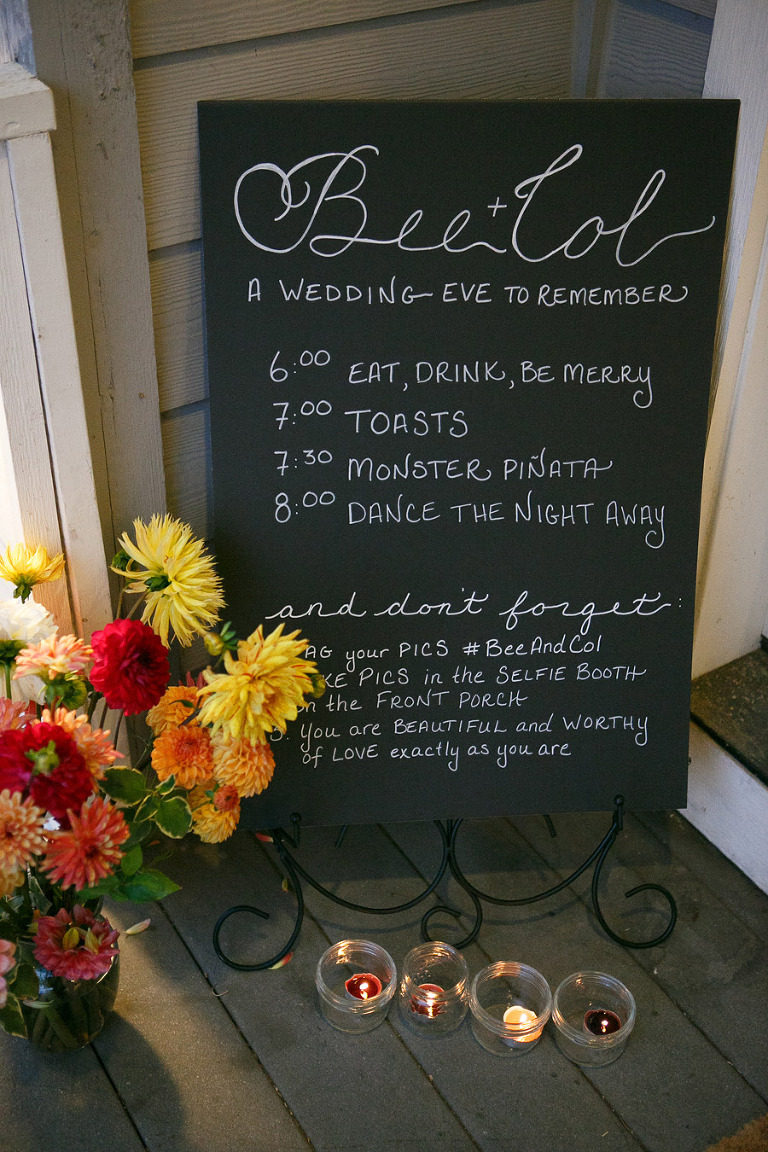 Bee + Col
A WEDDING EVE TO REMEMBER
6:00 EAT, DRINK, BE MERRY
7:00 TOASTS
7:30 MONSTER PIÑATA
8:00 DANCE THE NIGHT AWAY
and don't forget:
AG your PICS #BeeAndCol
KE PICS in the SELFIE BOOTH
n the FRONT PORCH
3. you are BEAUTIFUL and WORTHY
of LOVE exactly as you are